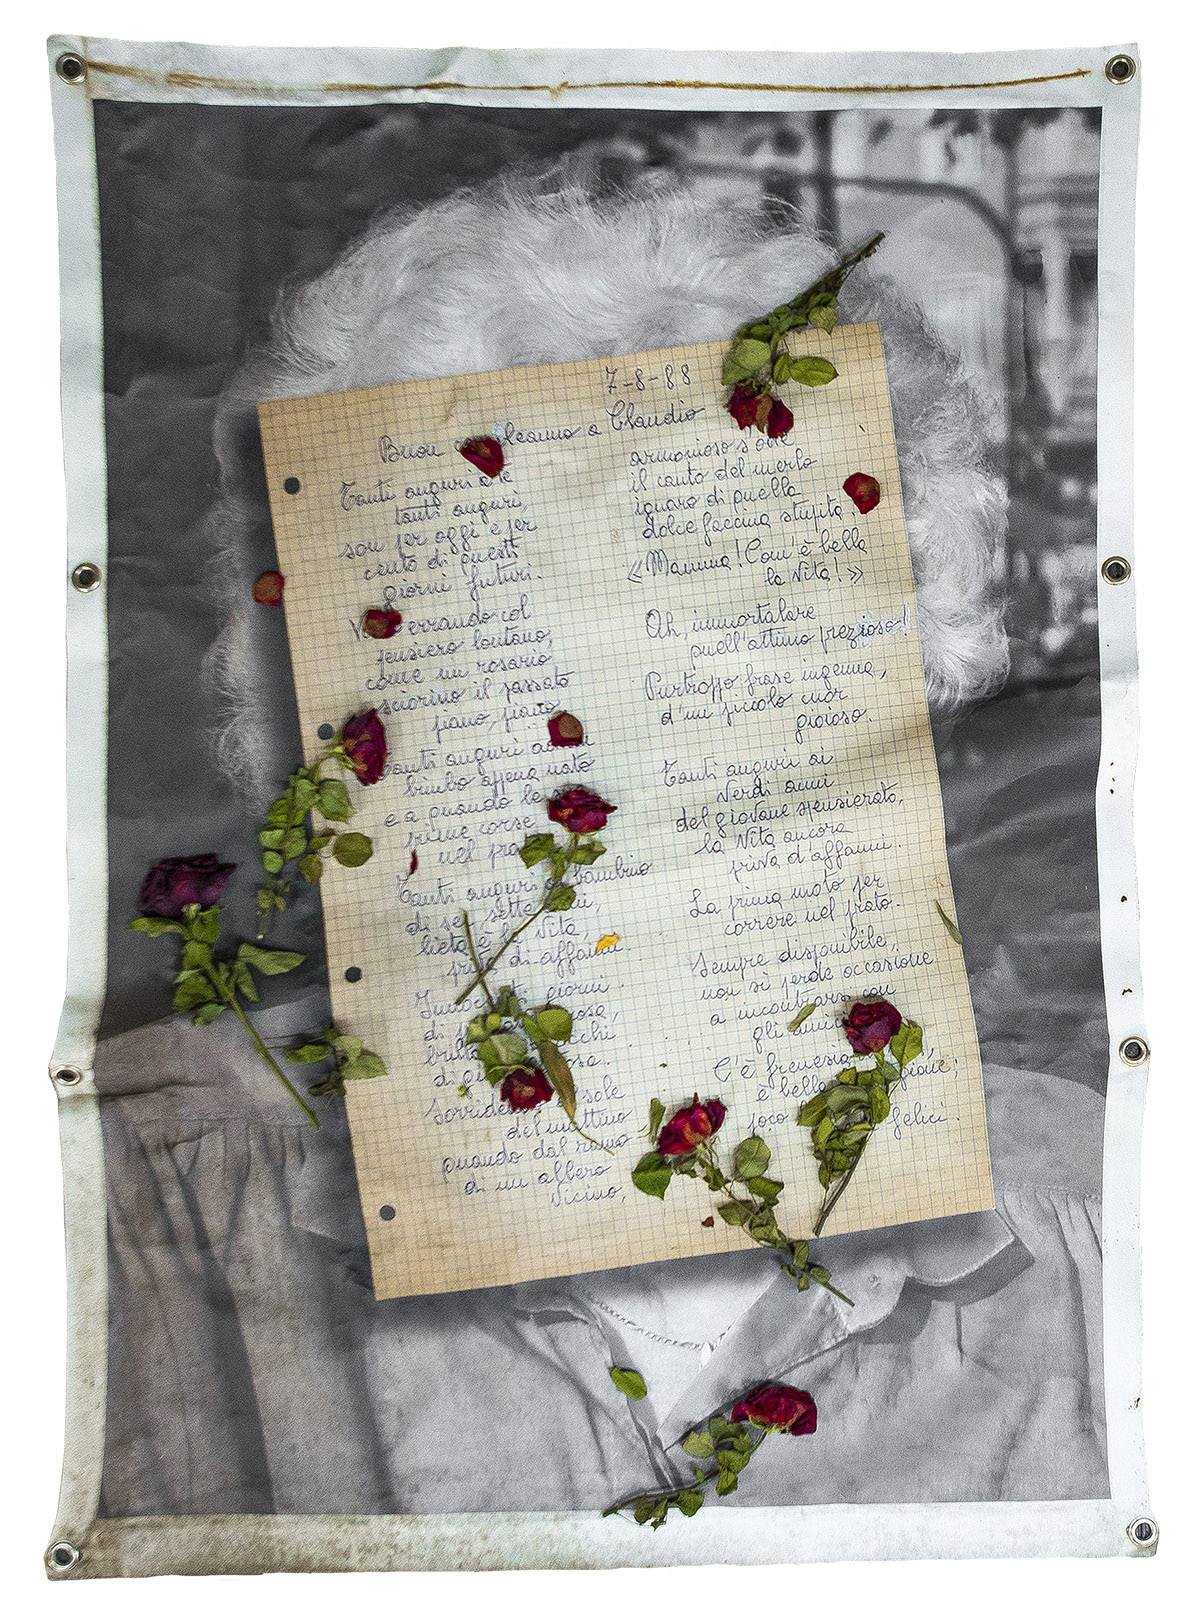 7-8-88
Buon a Claudio
Tanti auguri a te
tanti auguri,
son per oggi e per
cento di questi
giorni futuri.
errando col
pensiero lontano,
come un rosario
sciorino il passato
piano, piano
Tanti auguri
bimbo appena nato
e a quando le
prime corse
nel
Tanti auguri bambino
di sei sette
lieta è la vita,
di affanni.
giorni
di
di
sorridevi sole
del mattino
quando dal ramo
di un albero
vicino,
armonioso
il canto del merlo
ignaro di quella
dolce faccina stupita.
«Mamma! Com'è bella
la vita!»
Oh, immortalare
quell'attimo prezioso!
Purtroppo frase ingenua,
d'un piccolo cuor
gioioso.
Tanti auguri ai
verdi anni
del giovane spensierato,
la vita ancora
priva d'affanni.
La prima moto per
correre nel prato.
Sempre disponibile,
non si perde occasione
a incontrarsi con
gli
C'è frenesia
è bello
felici